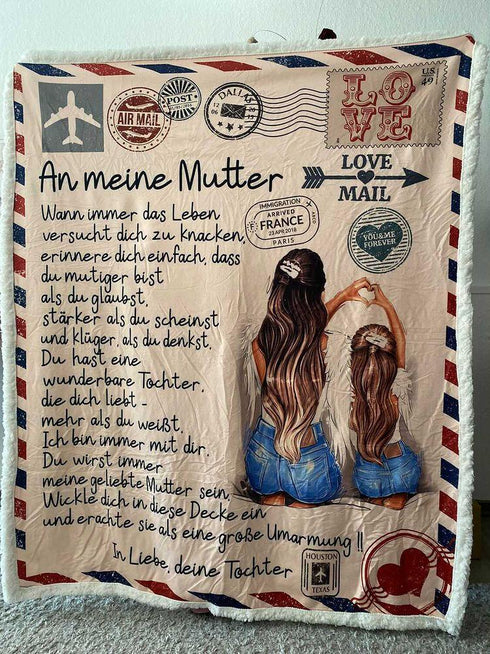 AIR MAIL
POST
DALLAS
12
06
LOVE
U.S
49
An meine Mutter
LOVE
MAIL
Wann immer das Leben
versucht dich zu knacken,
erinnere dich einfach, dass
du mutiger bist
als du glaubst,
stärker als du scheinst
und klüger, als du denkst.
Du hast eine
wunderbare Tochter,
die dich liebt -
mehr als du weißt.
Ich bin immer mit dir.
Du wirst immer
meine geliebte Mutter sein.
Wickle dich in diese Decke ein
und erachte sie als eine große Umarmung !!
In Liebe, deine Tochter
IMMIGRATION
ARRIVED
FRANCE
23 APR 2018
PARIS
YOU&ME
FOREVER
HOUSTON
TEXAS